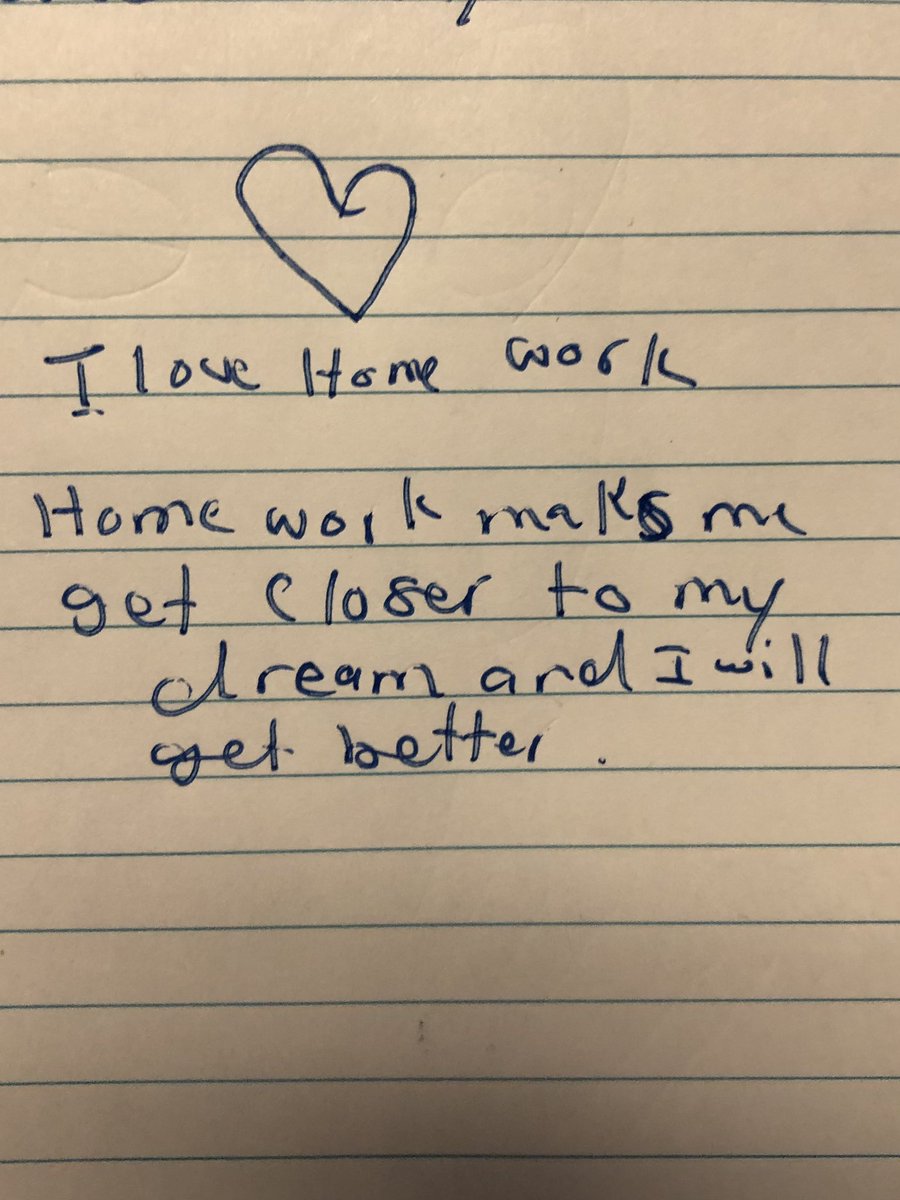 I love Home work
Home work maks me
get closer to my
dream and I will
get better.